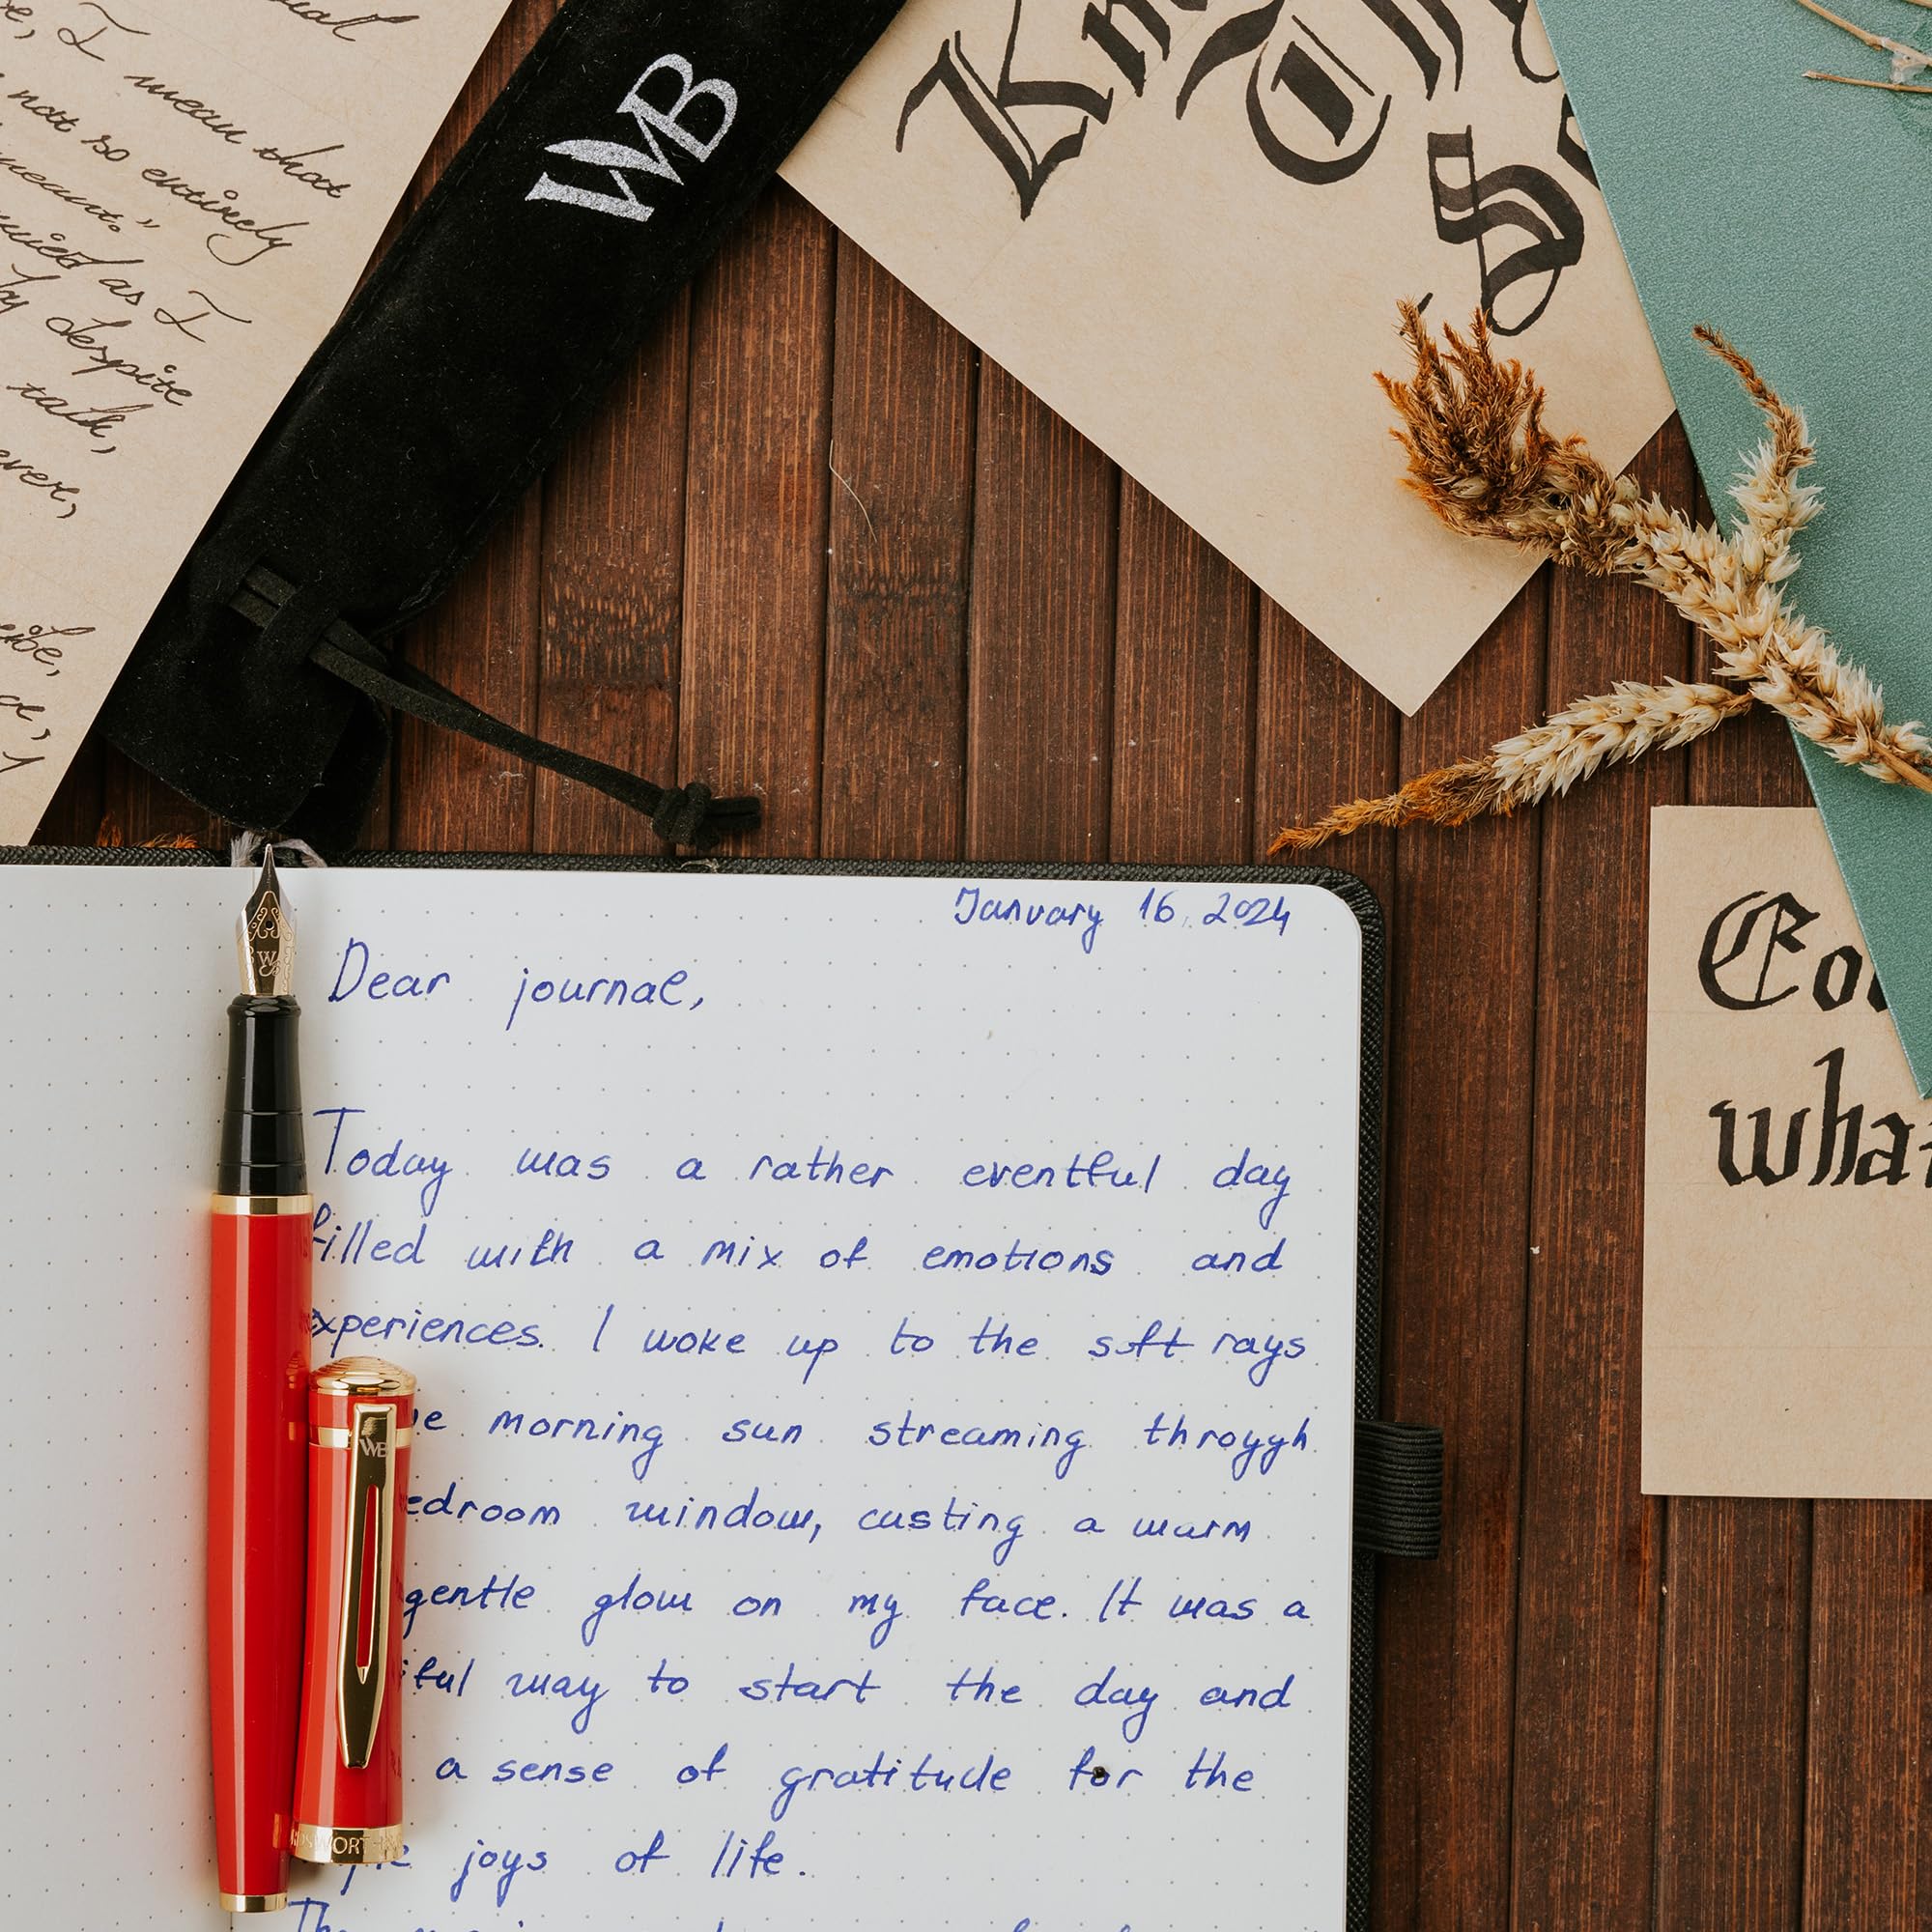 I mean that
not so entirely
meant."
as I
despite
talk,
WB
January 16, 2024
Dear journal,
Today was a rather eventful day
filled with a mix of emotions and
experiences. I woke up to the soft rays
morning sun streaming throygh
edroom window, casting a warm
gentle glow on my face. It was a
iful way to start the day and
a sense of gratitude for the
joys of life.
W
WB
WORTH
wha